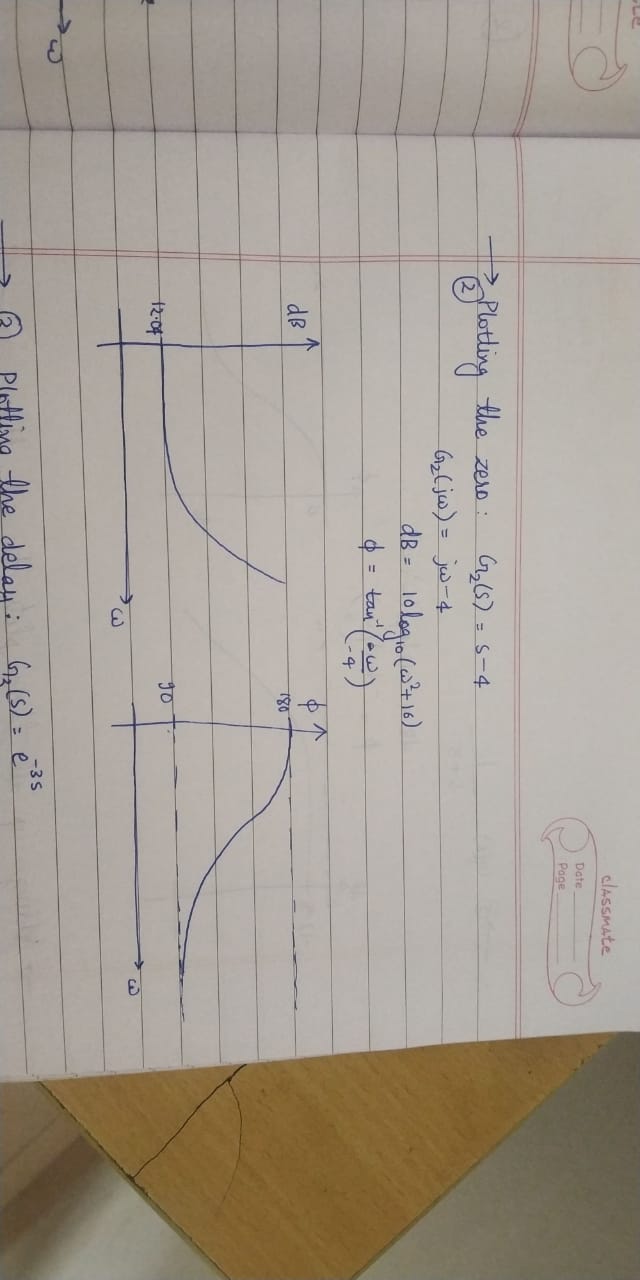 classmate
Date
Page
→ ② Plotting the zero: G₂(s) = s-4
G₂(jω) = jω-4
dB = 10 log₁₀(ω²+16)
φ = tan⁻¹(ω/-4)
dB
12.04
ω
φ
180
90
ω
→ ③ Plotting the delay: G₃(s) = e^-3s
ω